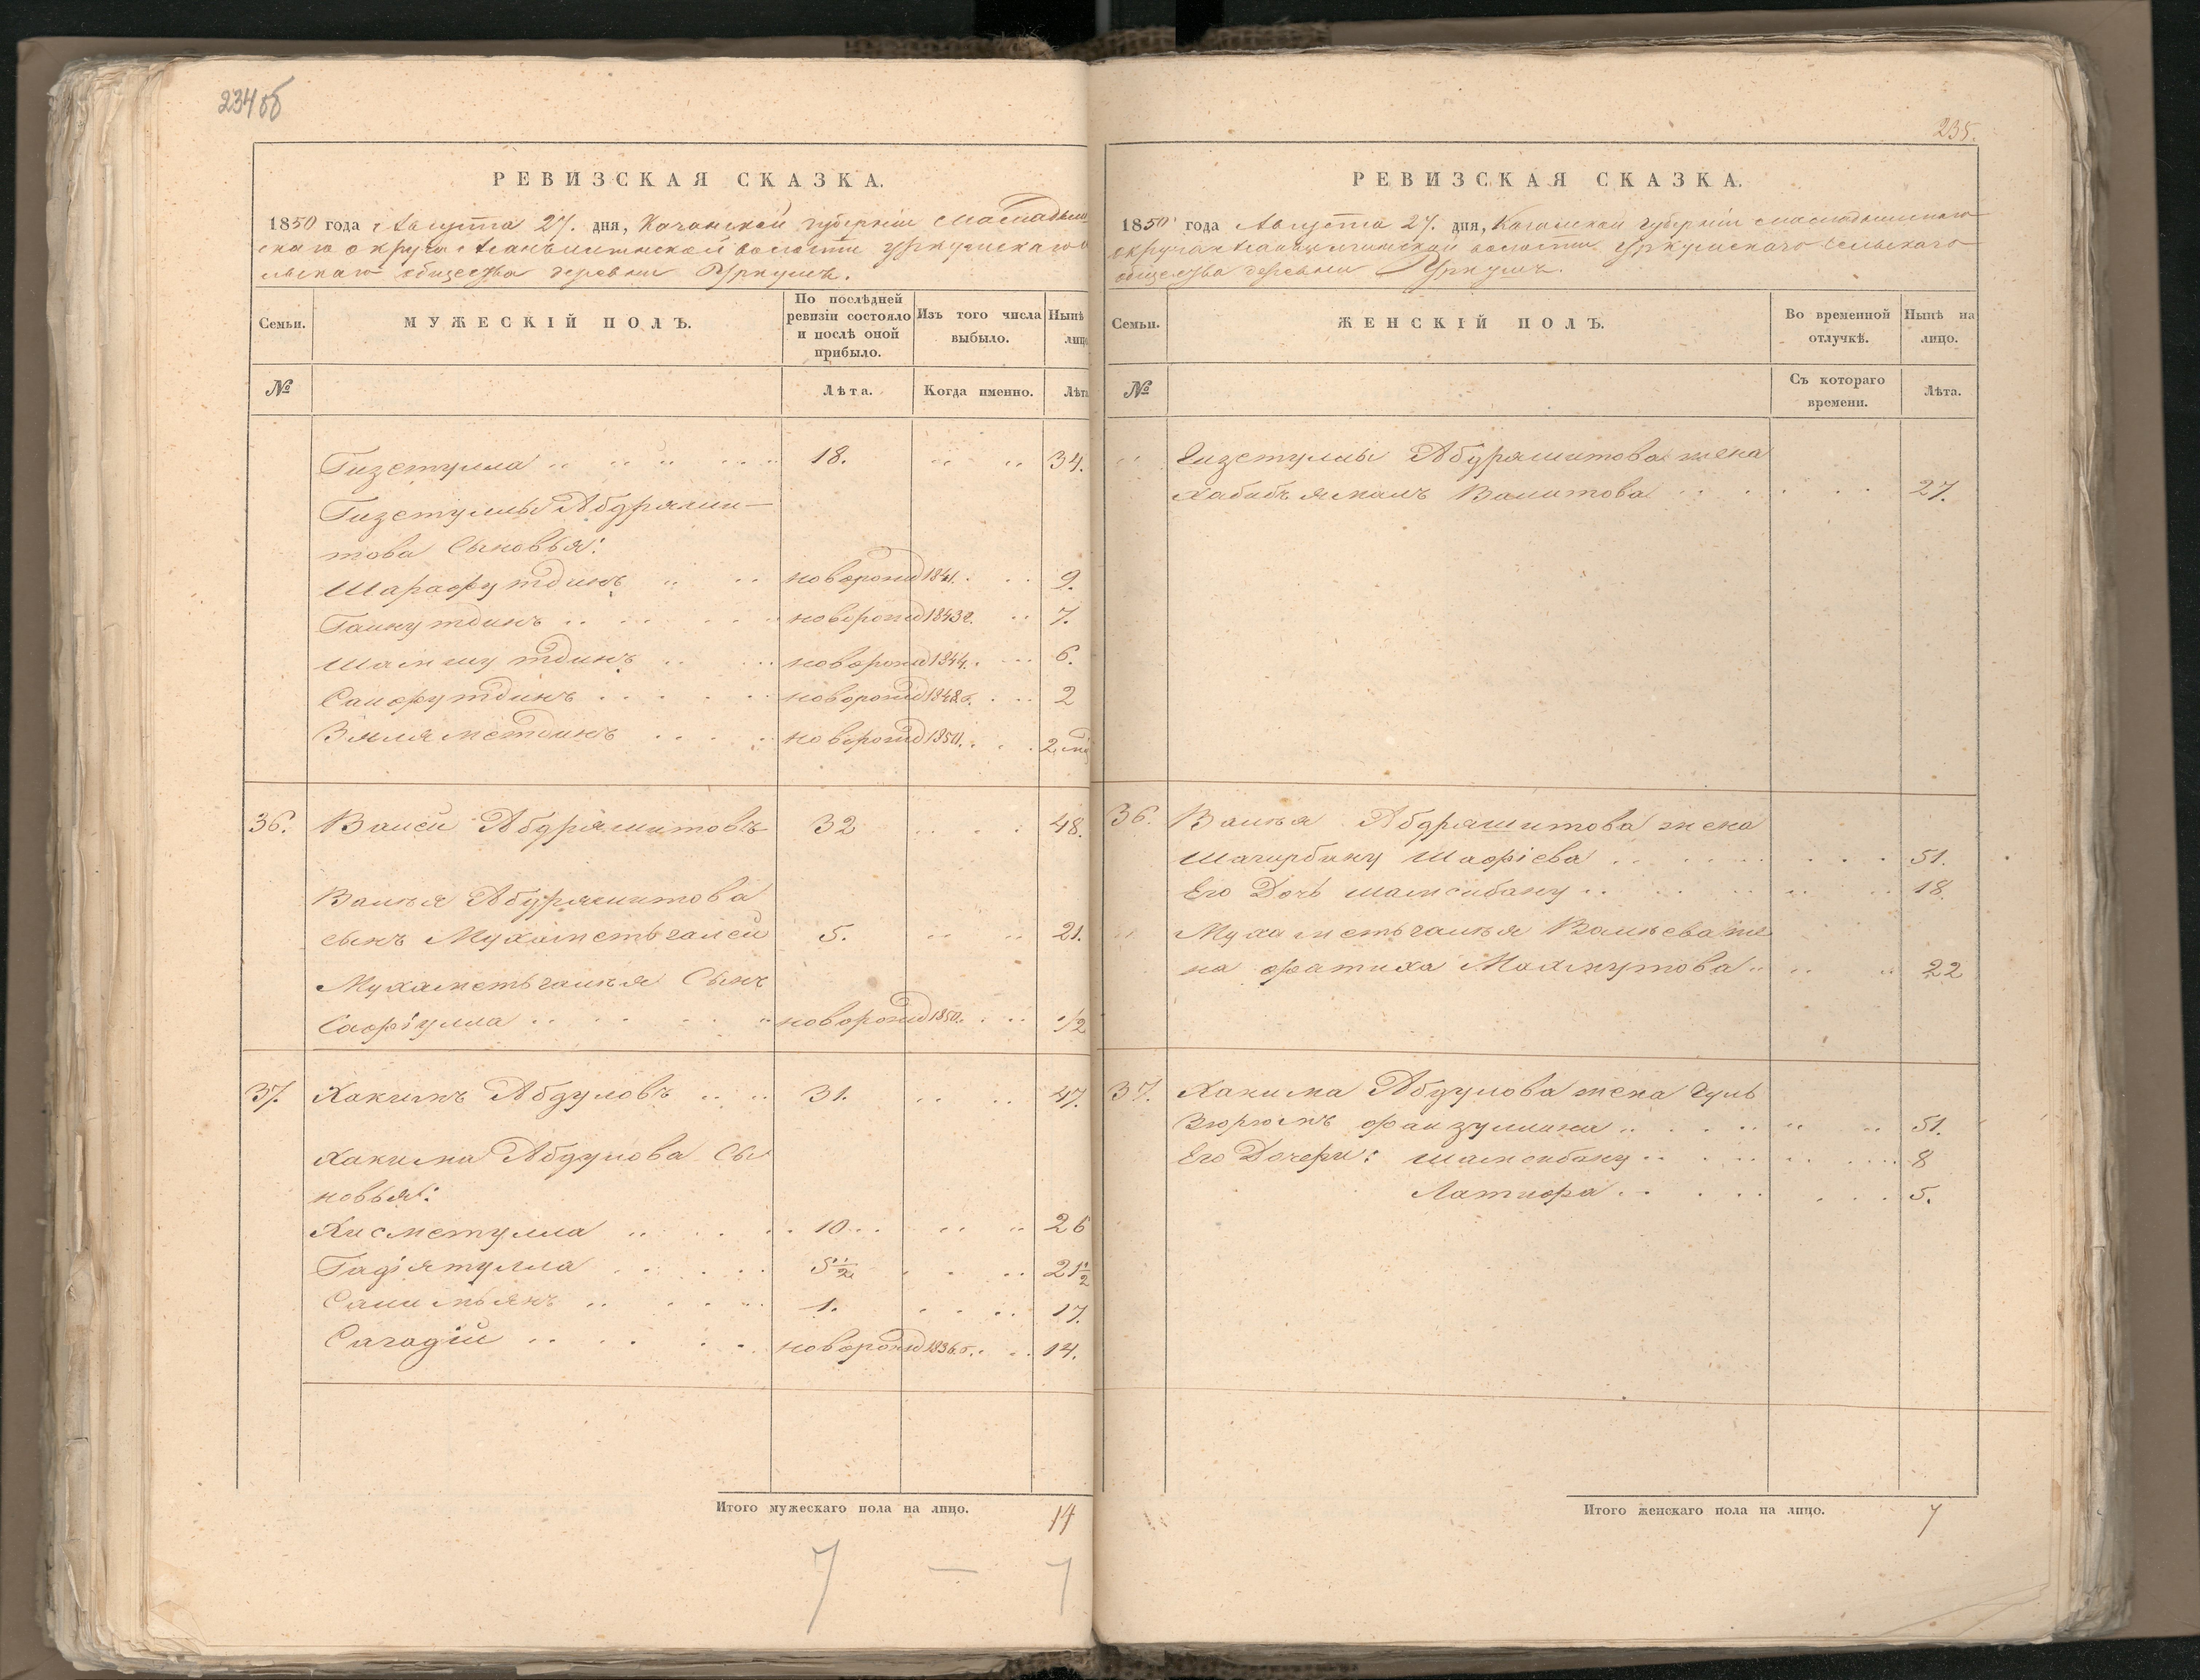 234 об
РЕВИЗСКАЯ СКАЗКА.
1850 года Августа 27. дня, Казанской губерніи Мамадыш
скаго округа волости Уркушскаго се
льскаго общества деревни Уркушъ.
Семьи.
МУЖЕСКІЙ ПОЛЪ.
По послѣдней ревизіи состояло и послѣ оной прибыло.
Изъ того числа выбыло.
Нынѣ лицо
№
Лѣта.
Когда именно.
Лѣта
Гизетулла 18. 34.
Гизетуллы Абдряши-
това Сыновья:
Шарафутдинъ новорожд 1841. 9.
Гайнутдинъ новорожд 1843 г. 7.
Шамшутдинъ новорожд 1844. 6.
Сайфутдинъ новорожд 1848 г. 2
Зяляметдинъ новорожд 1850. 2 мѣ
36. Валей Абдряшитовъ 32 48.
Валея Абдряшитова
сынъ Мухаметьгалей 5. 21.
Мухаметьгалея Сынъ
Сафіулла новорожд 1850. 1/2
37. Хакимъ Абдуловъ 31. 47.
Хакима Абдулова Сы
новья:
Хисметулла 10 26
Гадіятулла 5 1/2 21 1/2
Салимьянъ 1. 17.
Сагадій новорожд 1836 г. 14.
Итого мужескаго пола на лицо. 14
7 — 7
235.
РЕВИЗСКАЯ СКАЗКА.
1850 года Августа 27. дня, Казанской губерніи Мамадышскаго
округа волости Уркушскаго сельскаго
общества деревни Уркушъ.
Семьи.
ЖЕНСКІЙ ПОЛЪ.
Во временной отлучкѣ.
Нынѣ на лицо.
№
Съ котораго времени.
Лѣта.
Гизетуллы Абдряшитова жена
Хабибъямалъ Валитова 27.
36. Валея Абдряшитова жена
Шагирбану Шафіева 51.
Его Дочь Шамсибану 18.
Мухаметьгалея Валеева же
на Фатиха Махмутова 22
37. Хакима Абдулова жена Гуль
Зюрюмъ Файзуллина 51.
Его Дочери: Шамсибану 8
Латифа 5.
Итого женскаго пола на лицо. 7